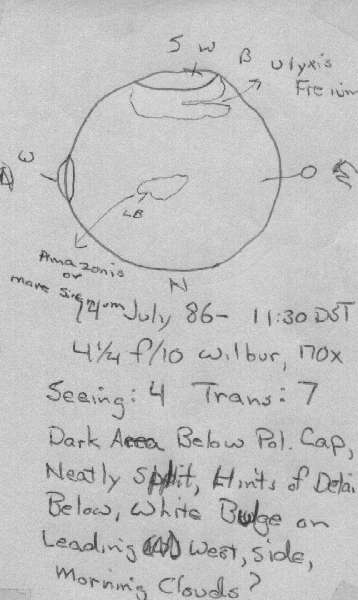 S W B Ulyxis
Fretum
W
LB
Amazonis
or
mare Sirenum
N
14 July 86- 11:30 DST
4 1/4 f/10 Wilbur, 170x
Seeing: 4 Trans: 7
Dark Area Below Pol. Cap,
Neatly Split, Hints of Detai
Below, White Bulge on
Leading West, Side,
Morning Clouds?